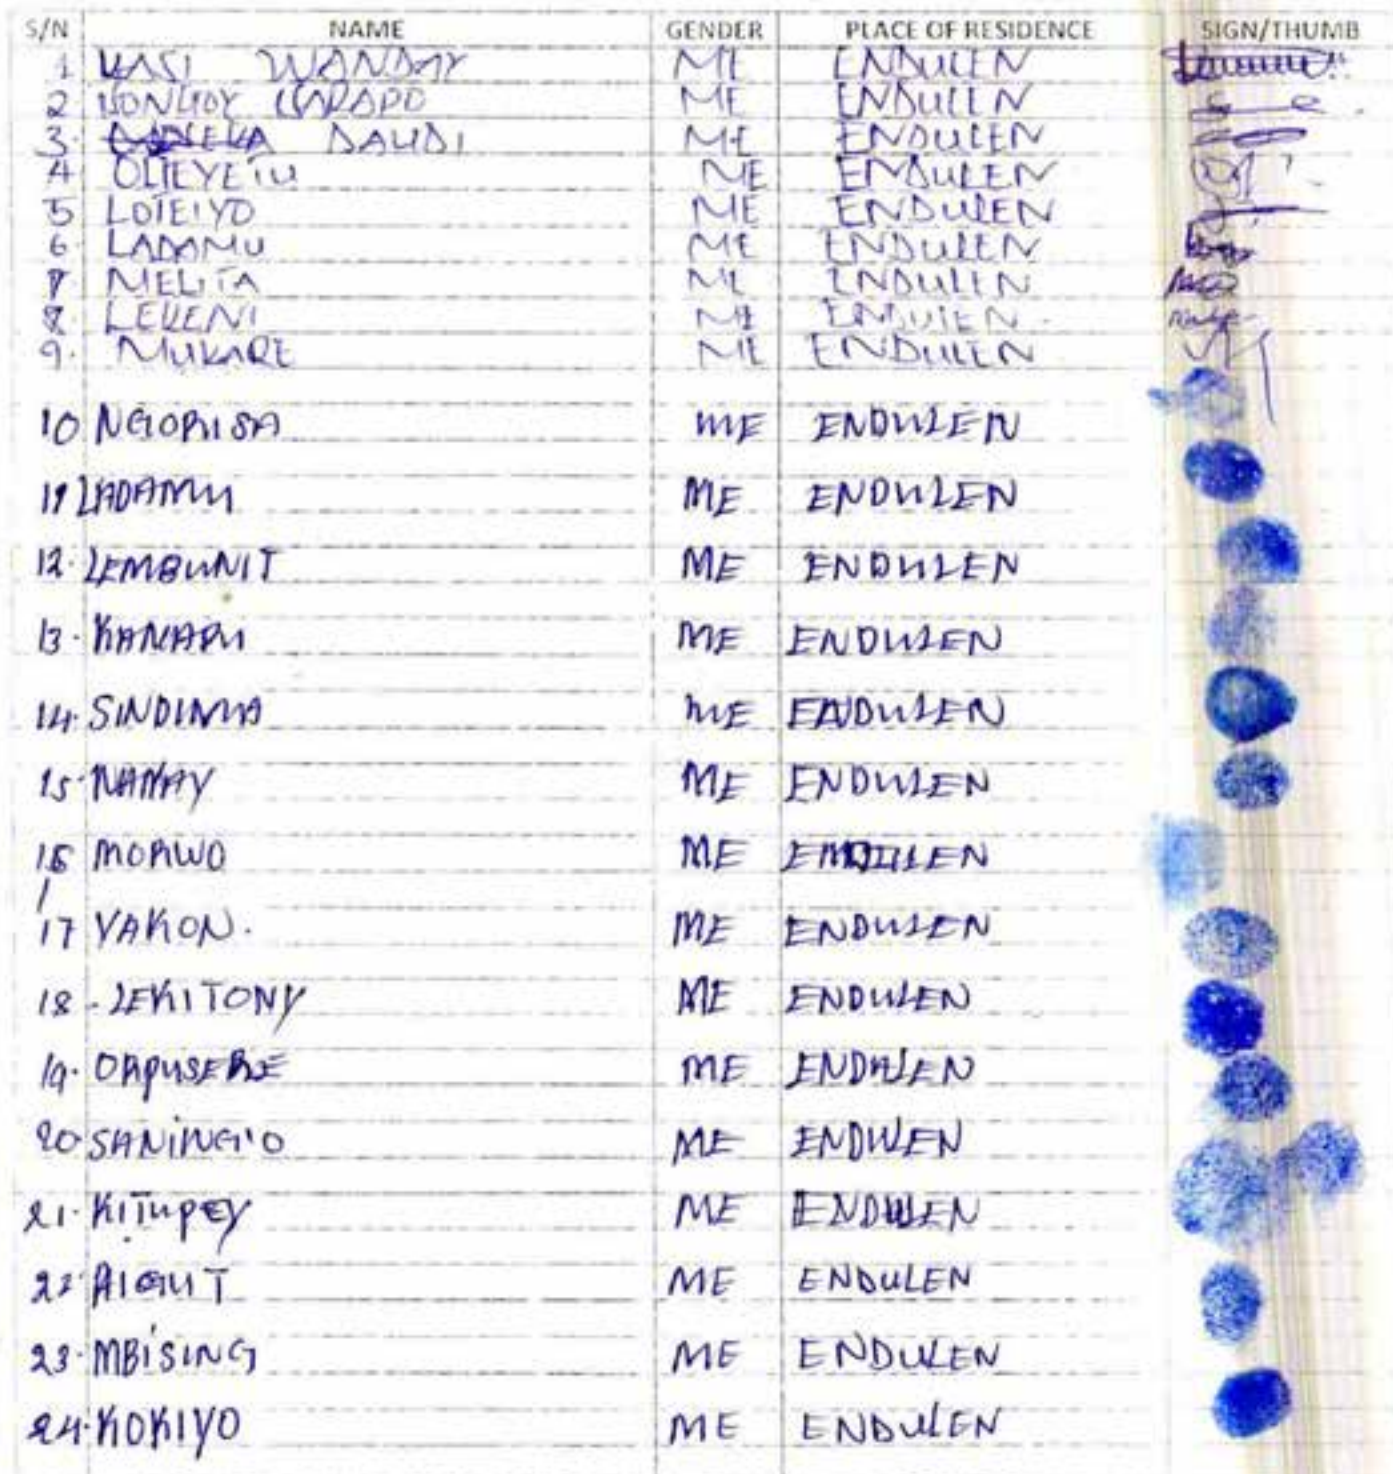 S/N NAME GENDER PLACE OF RESIDENCE SIGN/THUMB
1 WANDAY ME ENDULEN
2 ME ENDULEN
3. DAUDI ME ENDULEN
4 OLTEYETU ME ENDULEN
5 LOTEIYO ME ENDULEN
6 LADAMU ME ENDULEN
7 MELITA ME ENDULEN
8. LEKENI ME ENDULEN
9. MUKARE ME ENDULEN
10 NGORISA ME ENDULEN
11 LADAMU ME ENDULEN
12. LEMBUNIT ME ENDULEN
13. KANARU ME ENDULEN
14. SINDIMA ME ENDULEN
15. ME ENDULEN
16 MORWO ME ENDULEN
17 YAKON. ME ENDULEN
18 - LEKITONY ME ENDULEN
19. ORPUSERE ME ENDULEN
20 SANING'O ME ENDULEN
21. KITUPEY ME ENDULEN
22. AIGUT ME ENDULEN
23. MBISING ME ENDULEN
24. KOKIYO ME ENDULEN